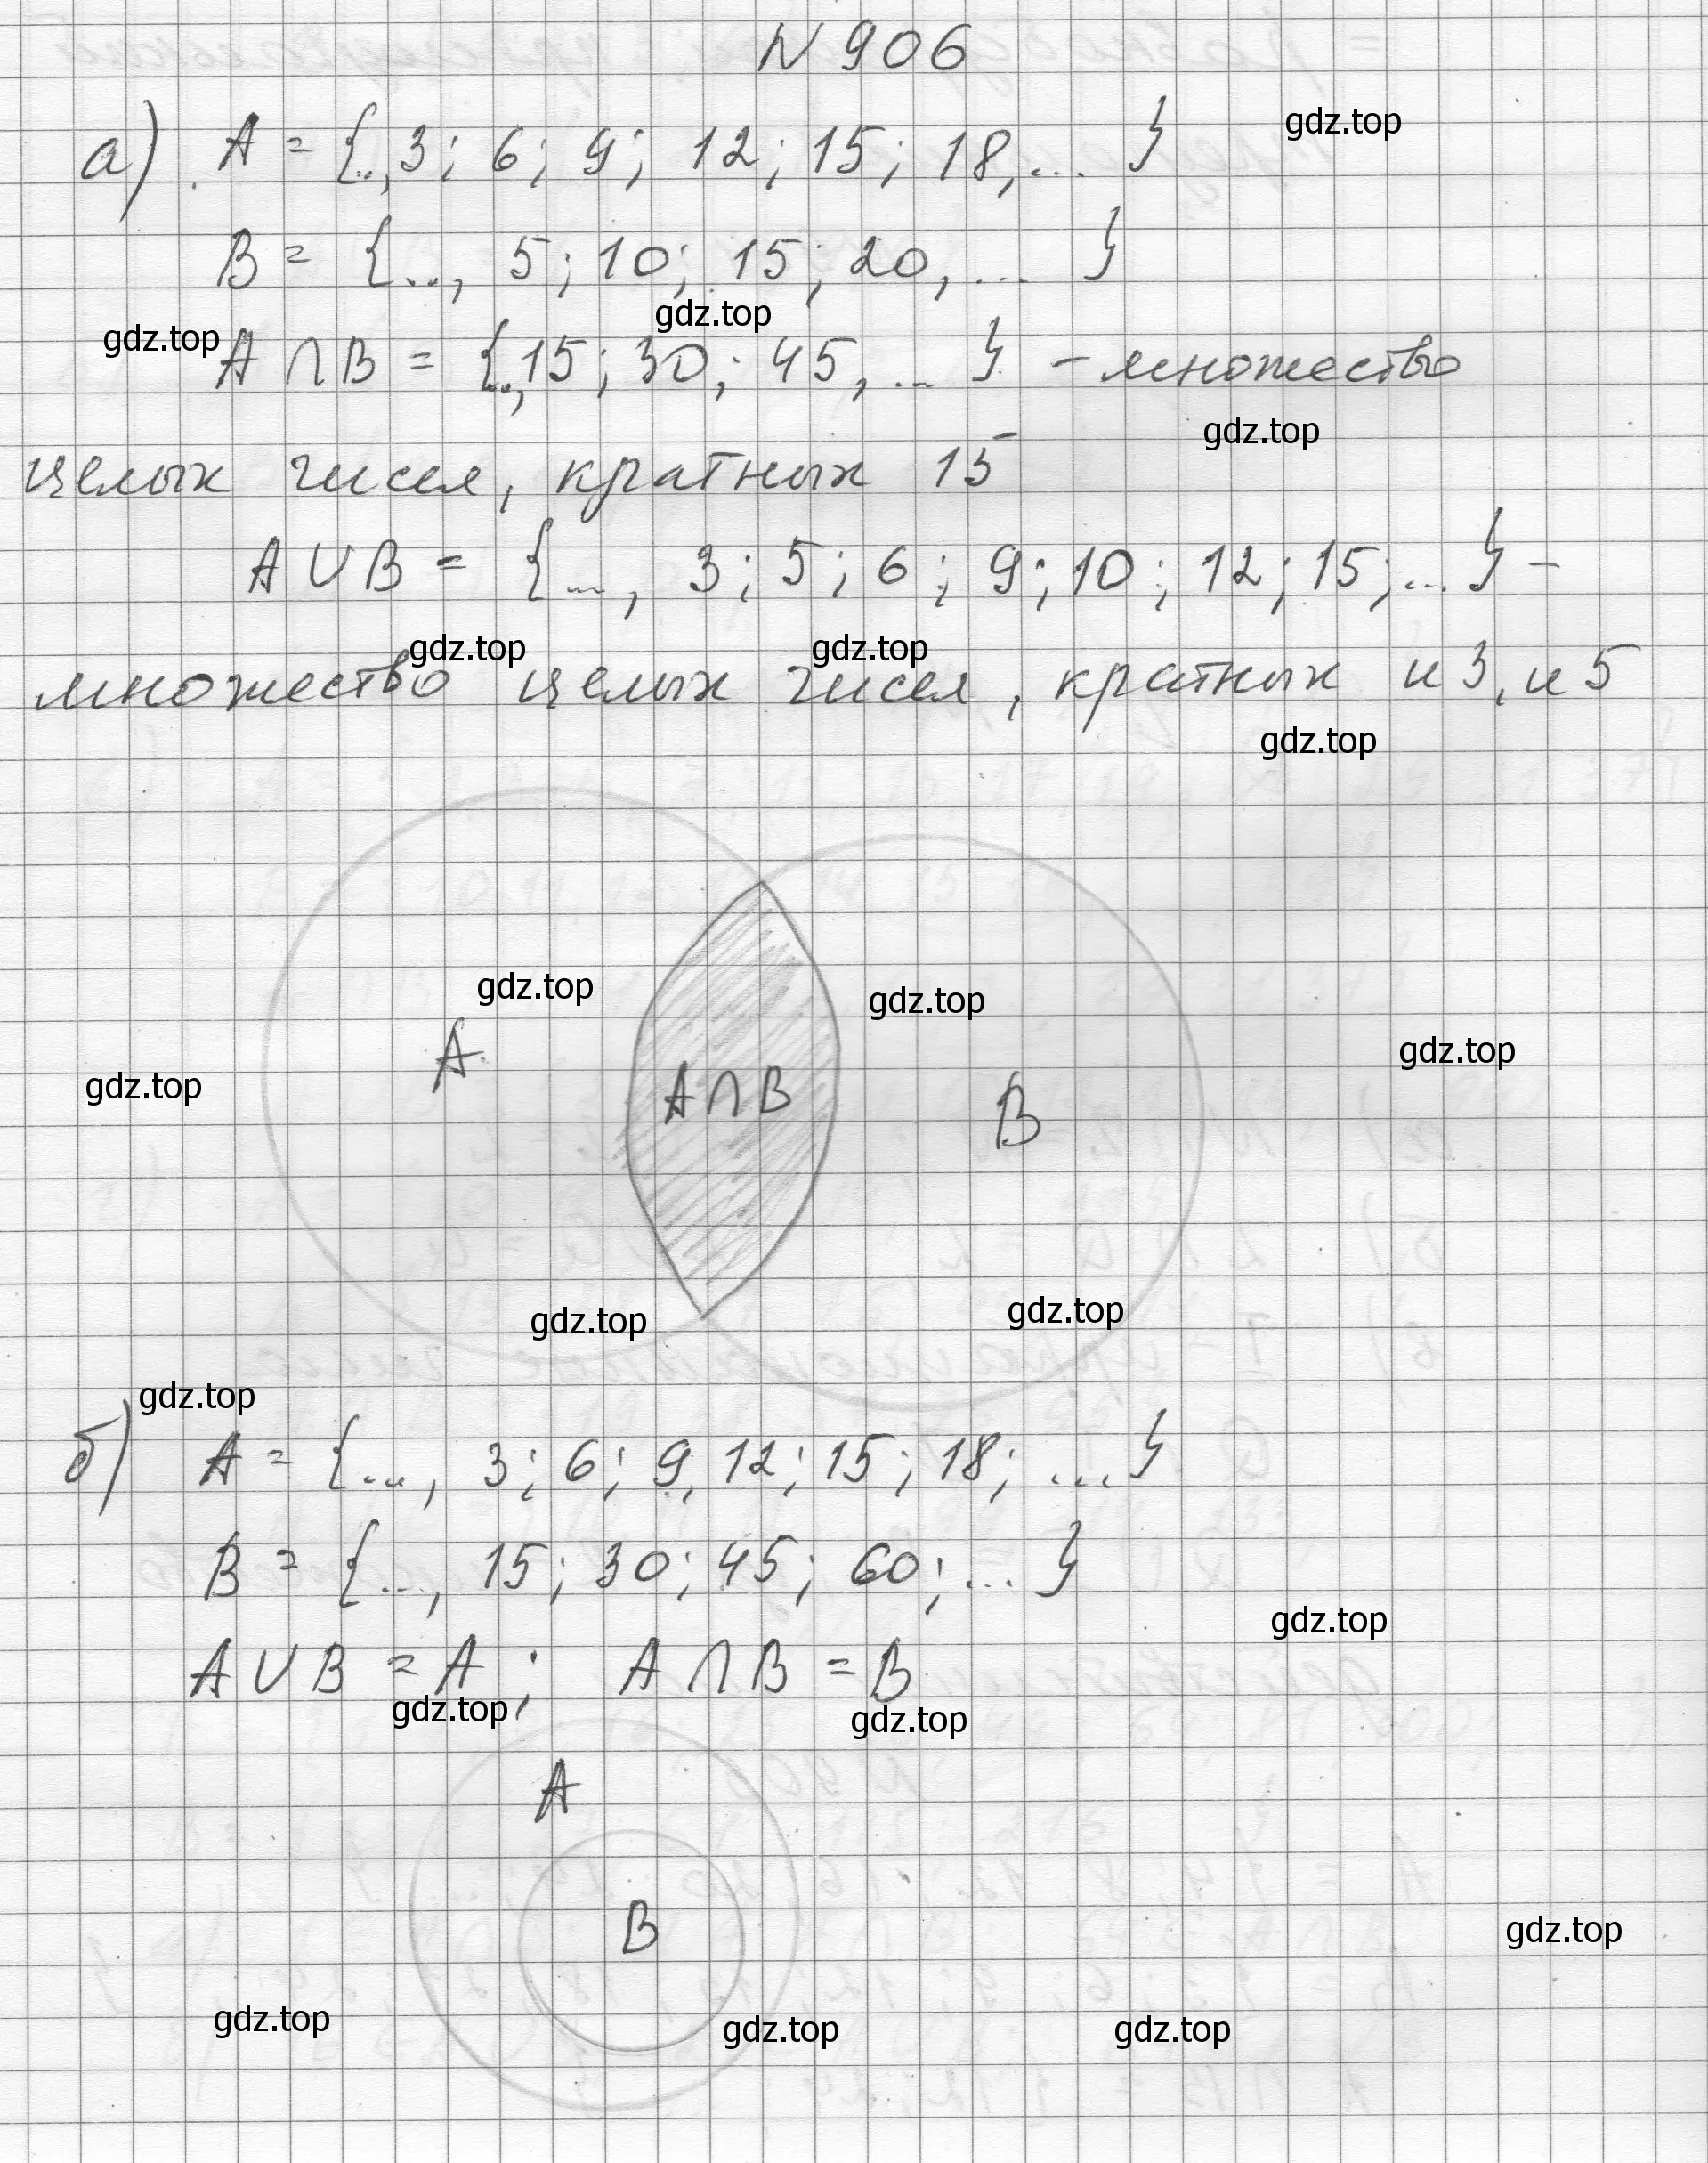 N 906
а) A = {.., 3; 6; 9; 12; 15; 18, ... }
gdz.top
B = {..., 5; 10; 15; 20, ... }
gdz.top
gdz.top
A ∩ B = {.., 15; 30; 45, ... } - множество
gdz.top
целых чисел, кратных 15
A ∪ B = {..., 3; 5; 6; 9; 10; 12; 15; ... } -
gdz.top gdz.top
множество целых чисел, кратных и 3, и 5
gdz.top
gdz.top gdz.top
A
gdz.top
gdz.top
A ∩ B
B
gdz.top gdz.top
gdz.top
б) A = {..., 3; 6; 9, 12; 15; 18; ... }
B = {..., 15; 30; 45; 60; ... }
gdz.top
A ∪ B = A ; A ∩ B = B
gdz.top gdz.top
A
B
gdz.top
gdz.top gdz.top gdz.top